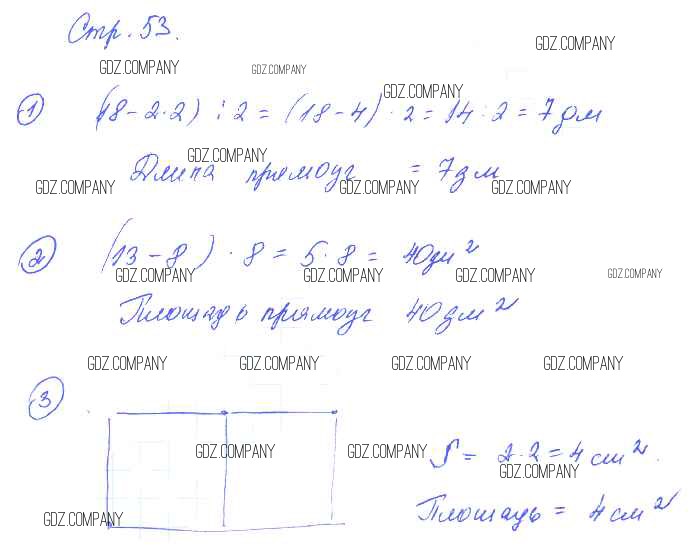 Стр. 53.
GDZ.COMPANY
GDZ.COMPANY GDZ.COMPANY
GDZ.COMPANY
1 (18-2·2) : 2 = (18-4) · 2 = 14 : 2 = 7 дм
GDZ.COMPANY
Длина прямоуг = 7 дм
GDZ.COMPANY GDZ.COMPANY GDZ.COMPANY
2 (13-8) · 8 = 5·8 = 40 дм²
GDZ.COMPANY GDZ.COMPANY GDZ.COMPANY GDZ.COMPANY
Площадь прямоуг 40 дм²
GDZ.COMPANY GDZ.COMPANY GDZ.COMPANY GDZ.COMPANY
3
GDZ.COMPANY GDZ.COMPANY
S = 2·2 = 4 см².
GDZ.COMPANY
Площадь = 4 см²
GDZ.COMPANY